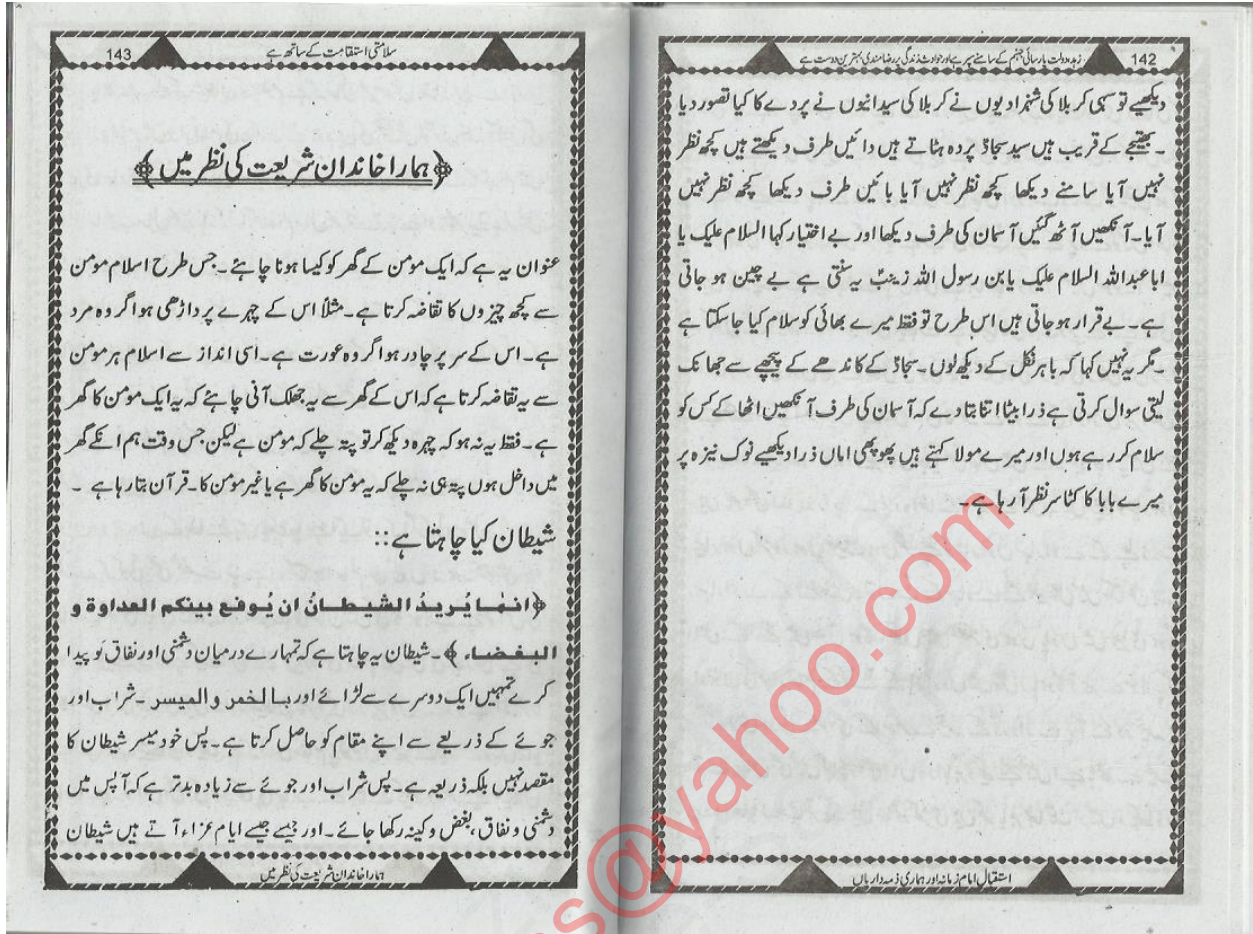 142
زہد و دولت پارسائی جہنم کے سامنے سپر ہے اور حوادث زندگی پر رضامندی بہترین دوست ہے
دیکھیے تو سہی کربلا کی شہزادیوں نے کربلا کی سیدانیوں نے پردے کا کیا تصور دیا
۔ بھتیجے کے قریب ہیں سید سجادؑ پردہ ہٹاتے ہیں دائیں طرف دیکھتے ہیں کچھ نظر
نہیں آیا سامنے دیکھا کچھ نظر نہیں آیا بائیں طرف دیکھا کچھ نظر نہیں
آیا۔ آنکھیں اُٹھ گئیں آسمان کی طرف دیکھا اور بے اختیار کہا السلام علیک یا
ابا عبداللہ السلام علیک یابن رسول اللہ زینبؑ یہ سنتی ہے بے چین ہو جاتی
ہے۔ بے قرار ہو جاتی ہیں اس طرح تو فقط میرے بھائی کو سلام کیا جاسکتا ہے
۔ مگر یہ نہیں کہا کہ باہر نکل کے دیکھ لوں۔ سجادؑ کے کاندھے کے پیچھے سے جھانک
لیتی سوال کرتی ہے ذرا بیٹا اتنا بتا دے کہ آسمان کی طرف آنکھیں اٹھا کے کس کو
سلام کر رہے ہوں اور میرے مولا کہتے ہیں پھوپھی اماں ذرا دیکھیے نوک نیزہ پر
میرے بابا کا کٹا سر نظر آ رہا ہے۔
استقبال امام زمانہ اور ہماری ذمہ داریاں
143
سلامتی استقامت کے ساتھ ہے
﴿ہمارا خاندان شریعت کی نظر میں﴾
عنوان یہ ہے کہ ایک مومن کے گھر کو کیسا ہونا چاہئے۔ جس طرح اسلام مومن
سے کچھ چیزوں کا تقاضہ کرتا ہے۔ مثلاً اس کے چہرے پر داڑھی ہو اگر وہ مرد
ہے۔ اس کے سر پر چادر ہو اگر وہ عورت ہے۔ اسی انداز سے اسلام ہر مومن
سے یہ تقاضہ کرتا ہے کہ اس کے گھر سے یہ جھلک آنی چاہئے کہ یہ ایک مومن کا گھر
ہے۔ فقط یہ نہ ہو کہ چہرہ دیکھ کر تو پتہ چلے کہ مومن ہے لیکن جس وقت ہم انکے گھر
میں داخل ہوں پتہ ہی نہ چلے کہ یہ مومن کا گھر ہے یا غیر مومن کا۔ قرآن بتا رہا ہے ۔
شیطان کیا چاہتا ہے::
﴿انمٰا یُریدُ الشیطانُ ان یُوقع بینکم العداوة و
البغضاء ﴾۔ شیطان یہ چاہتا ہے کہ تمہارے درمیان دشمنی اور نفاق کو پیدا
کرے تمہیں ایک دوسرے سے لڑائے اور بالخمر والمیسر۔ شراب اور
جوئے کے ذریعے سے اپنے مقام کو حاصل کرتا ہے۔ پس خود میسر شیطان کا
مقصد نہیں بلکہ ذریعہ ہے۔ پس شراب اور جوئے سے زیادہ بدتر ہے کہ آپس میں
دشمنی و نفاق، بغض و کینہ رکھا جائے۔ اور جیسے جیسے ایام عزاء آتے ہیں شیطان
ہمارا خاندان شریعت کی نظر میں
s@yahoo.com